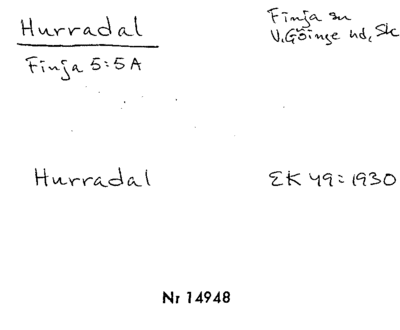 Hurradal
Finja sn
V. Göinge hd, Sk
Finja 5:5A
Hurradal
EK 49: 1930
Nr 14948